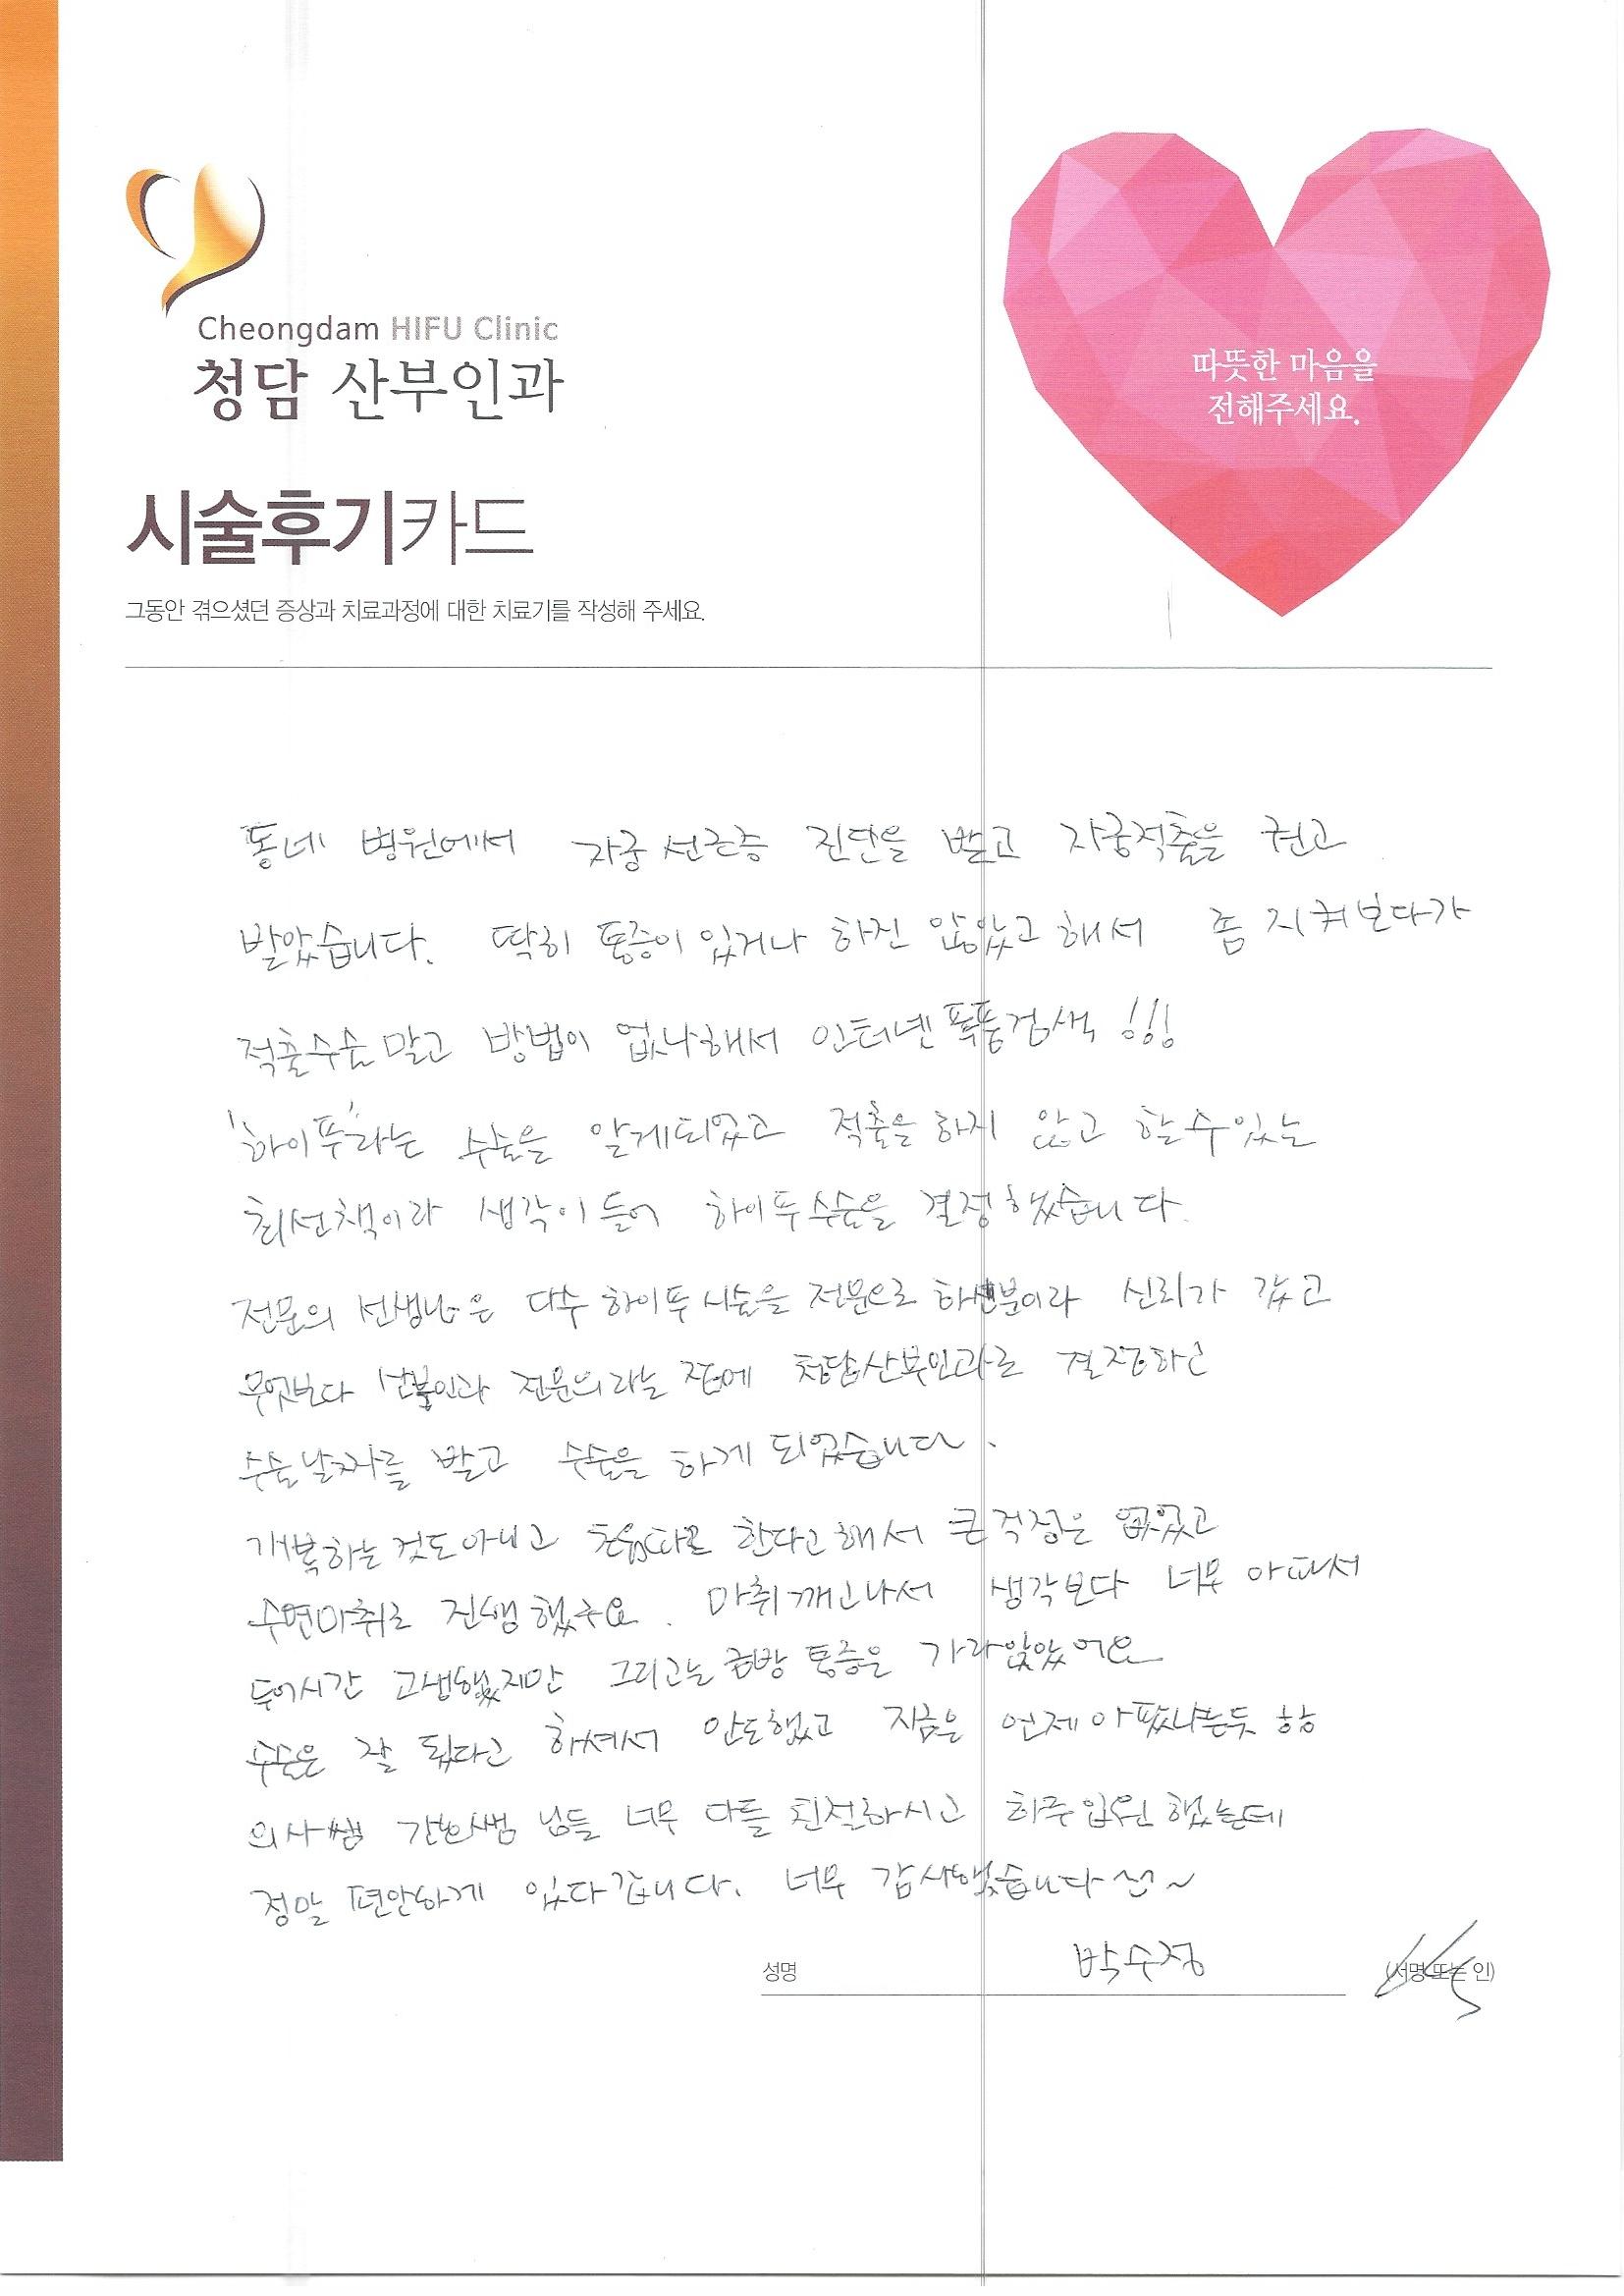 Cheongdam HIFU Clinic
청담 산부인과
따뜻한 마음을
전해주세요.
시술후기카드
그동안 겪으셨던 증상과 치료과정에 대한 치료기를 작성해 주세요.
동네 병원에서 자궁선근증 진단을 받고 자궁적출을 권고
받았습니다. 딱히 통증이 있거나 하진 않았고 해서 좀 지켜보다가
적출수술 말고 방법이 없나해서 인터넷 폭풍검색 !!!
'하이푸'라는 수술을 알게되었고 적출을 하지 않고 할수있는
최선책이라 생각이 들어 하이푸수술을 결정했습니다.
전문의 선생님은 다수 하이푸시술을 전문으로 하신분이라 신뢰가 갔고
무엇보다 산부인과 전문의라는 점에 청담산부인과로 결정하고
수술날짜를 받고 수술을 하게 되었습니다.
개복하는것도아니고 초음파로 한다고해서 큰걱정은 없었고
수면마취로 진행했구요. 마취깨고나서 생각보다 너무 아파서
두어시간 고생했지만 그리고는 금방 통증은 가라앉았어요
수술은 잘 됐다고 하셔서 안도했고 지금은 언제아팠냐는듯 ㅎㅎ
의사쌤 간호쌤 님들 너무 다들 친절하시고 하루입원했는데
정말 편안하게 있다갑니다. 너무 감사했습니다
성명 박수정 (서명 또는 인)